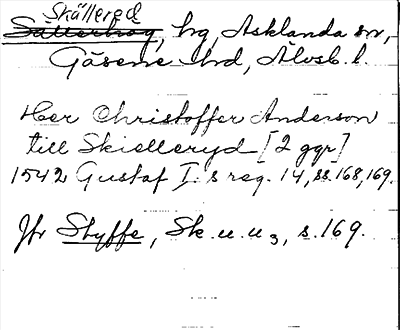 Skällered
Sätterhog, hg, Asklanda sn,
Gäsene hd, Älvsb. l.
Her Christoffer Anderson
till Skielleryd [2 ggr]
1542 Gustaf I:s reg. 14, ss. 168, 169.
Jfr Styffe, Sk. u. u 3, s. 169.